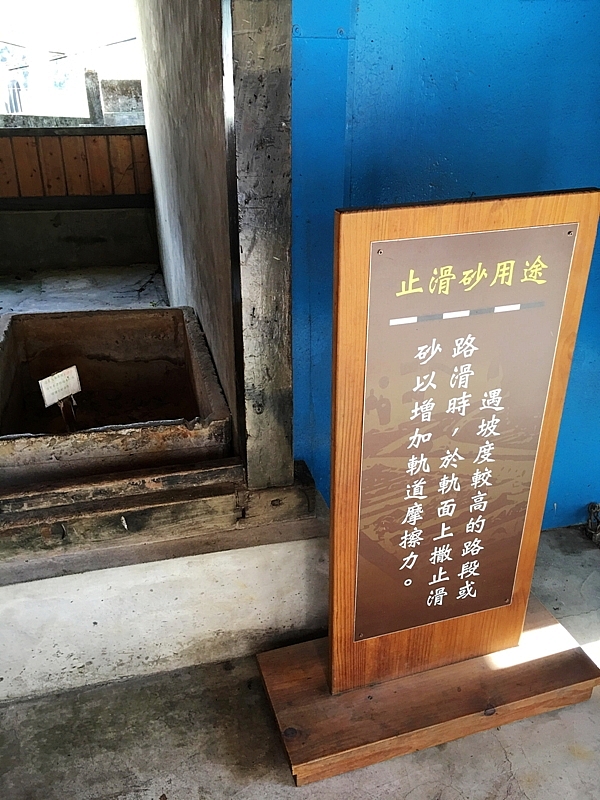 止滑砂用途
遇坡度較高的路段或
路滑時，於軌面上撒止滑
砂以增加軌道摩擦力。